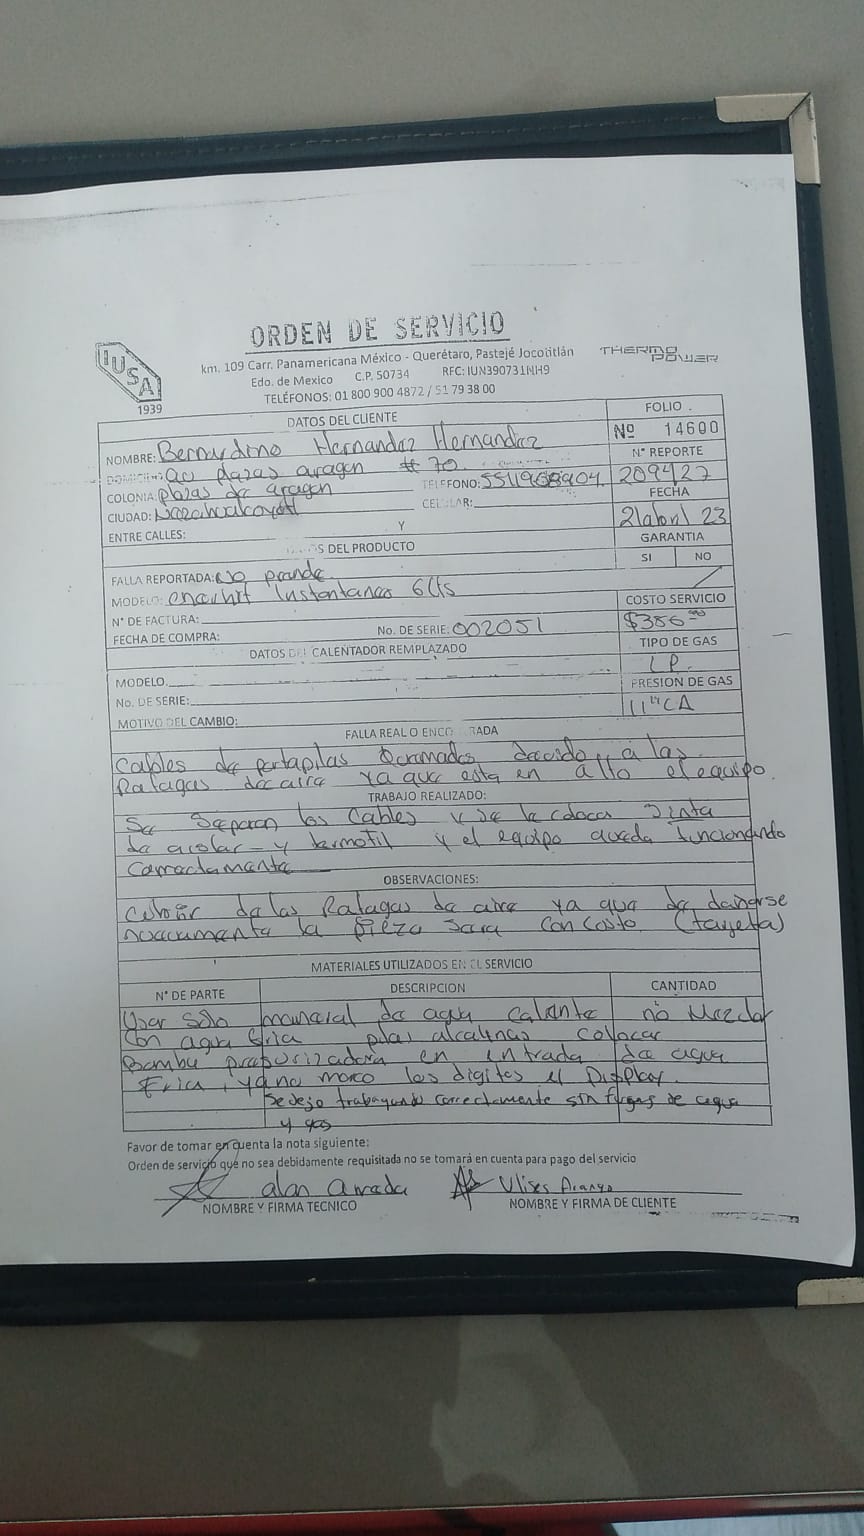 ORDEN DE SERVICIO
IUSA
1939
THERMO POWER
km. 109 Carr. Panamericana México - Querétaro, Pastejé Jocotitlán
Edo. de Mexico C.P. 50734 RFC: IUN390731NH9
TELÉFONOS: 01 800 900 4872 / 51 79 38 00
DATOS DEL CLIENTE
FOLIO
Nº 14600
NOMBRE: Bernardino Hernandez Hernandez
Nº REPORTE
DOMICILIO: av plazas aragon # 70
TELEFONO: 209427
COLONIA: plazas de aragon
FECHA
CIUDAD: Nezahualcoyotl
CELULAR:
21 abril 23
ENTRE CALLES: Y
GARANTIA
DATOS DEL PRODUCTO
SI NO
FALLA REPORTADA: No prende
MODELO: Instantaneo 6 Lts
COSTO SERVICIO
Nº DE FACTURA:
FECHA DE COMPRA: No. DE SERIE: 002051
TIPO DE GAS
DATOS DEL CALENTADOR REMPLAZADO
L.P.
MODELO.
PRESION DE GAS
No. DE SERIE:
11" CA
MOTIVO DEL CAMBIO:
FALLA REAL O ENCONTRADA
Cables de portapilas Quemados devido a las
Rafagas de aire ya que esta en alto el equipo.
TRABAJO REALIZADO:
Se Separan los Cables y se le coloca Sinta
de aislar y termofil y el equipo queda funcionando
Correctamente
OBSERVACIONES:
de las Rafagas de aire ya que de dañarse
nuevamente la pieza sera con costo (tarjeta)
MATERIALES UTILIZADOS EN EL SERVICIO
Nº DE PARTE DESCRIPCION CANTIDAD
Usar solo maneral de agua caliente no Mezclar
con agua fria pilas alcalinas colocar
Bomba presurizadora en entrada de agua
Fria, ya no marco los digitos el Display.
Se dejo trabajando correctamente sin fugas de agua
y gas
Favor de tomar en cuenta la nota siguiente:
Orden de servicio que no sea debidamente requisitada no se tomará en cuenta para pago del servicio
alan Ulises
NOMBRE Y FIRMA TECNICO NOMBRE Y FIRMA DE CLIENTE